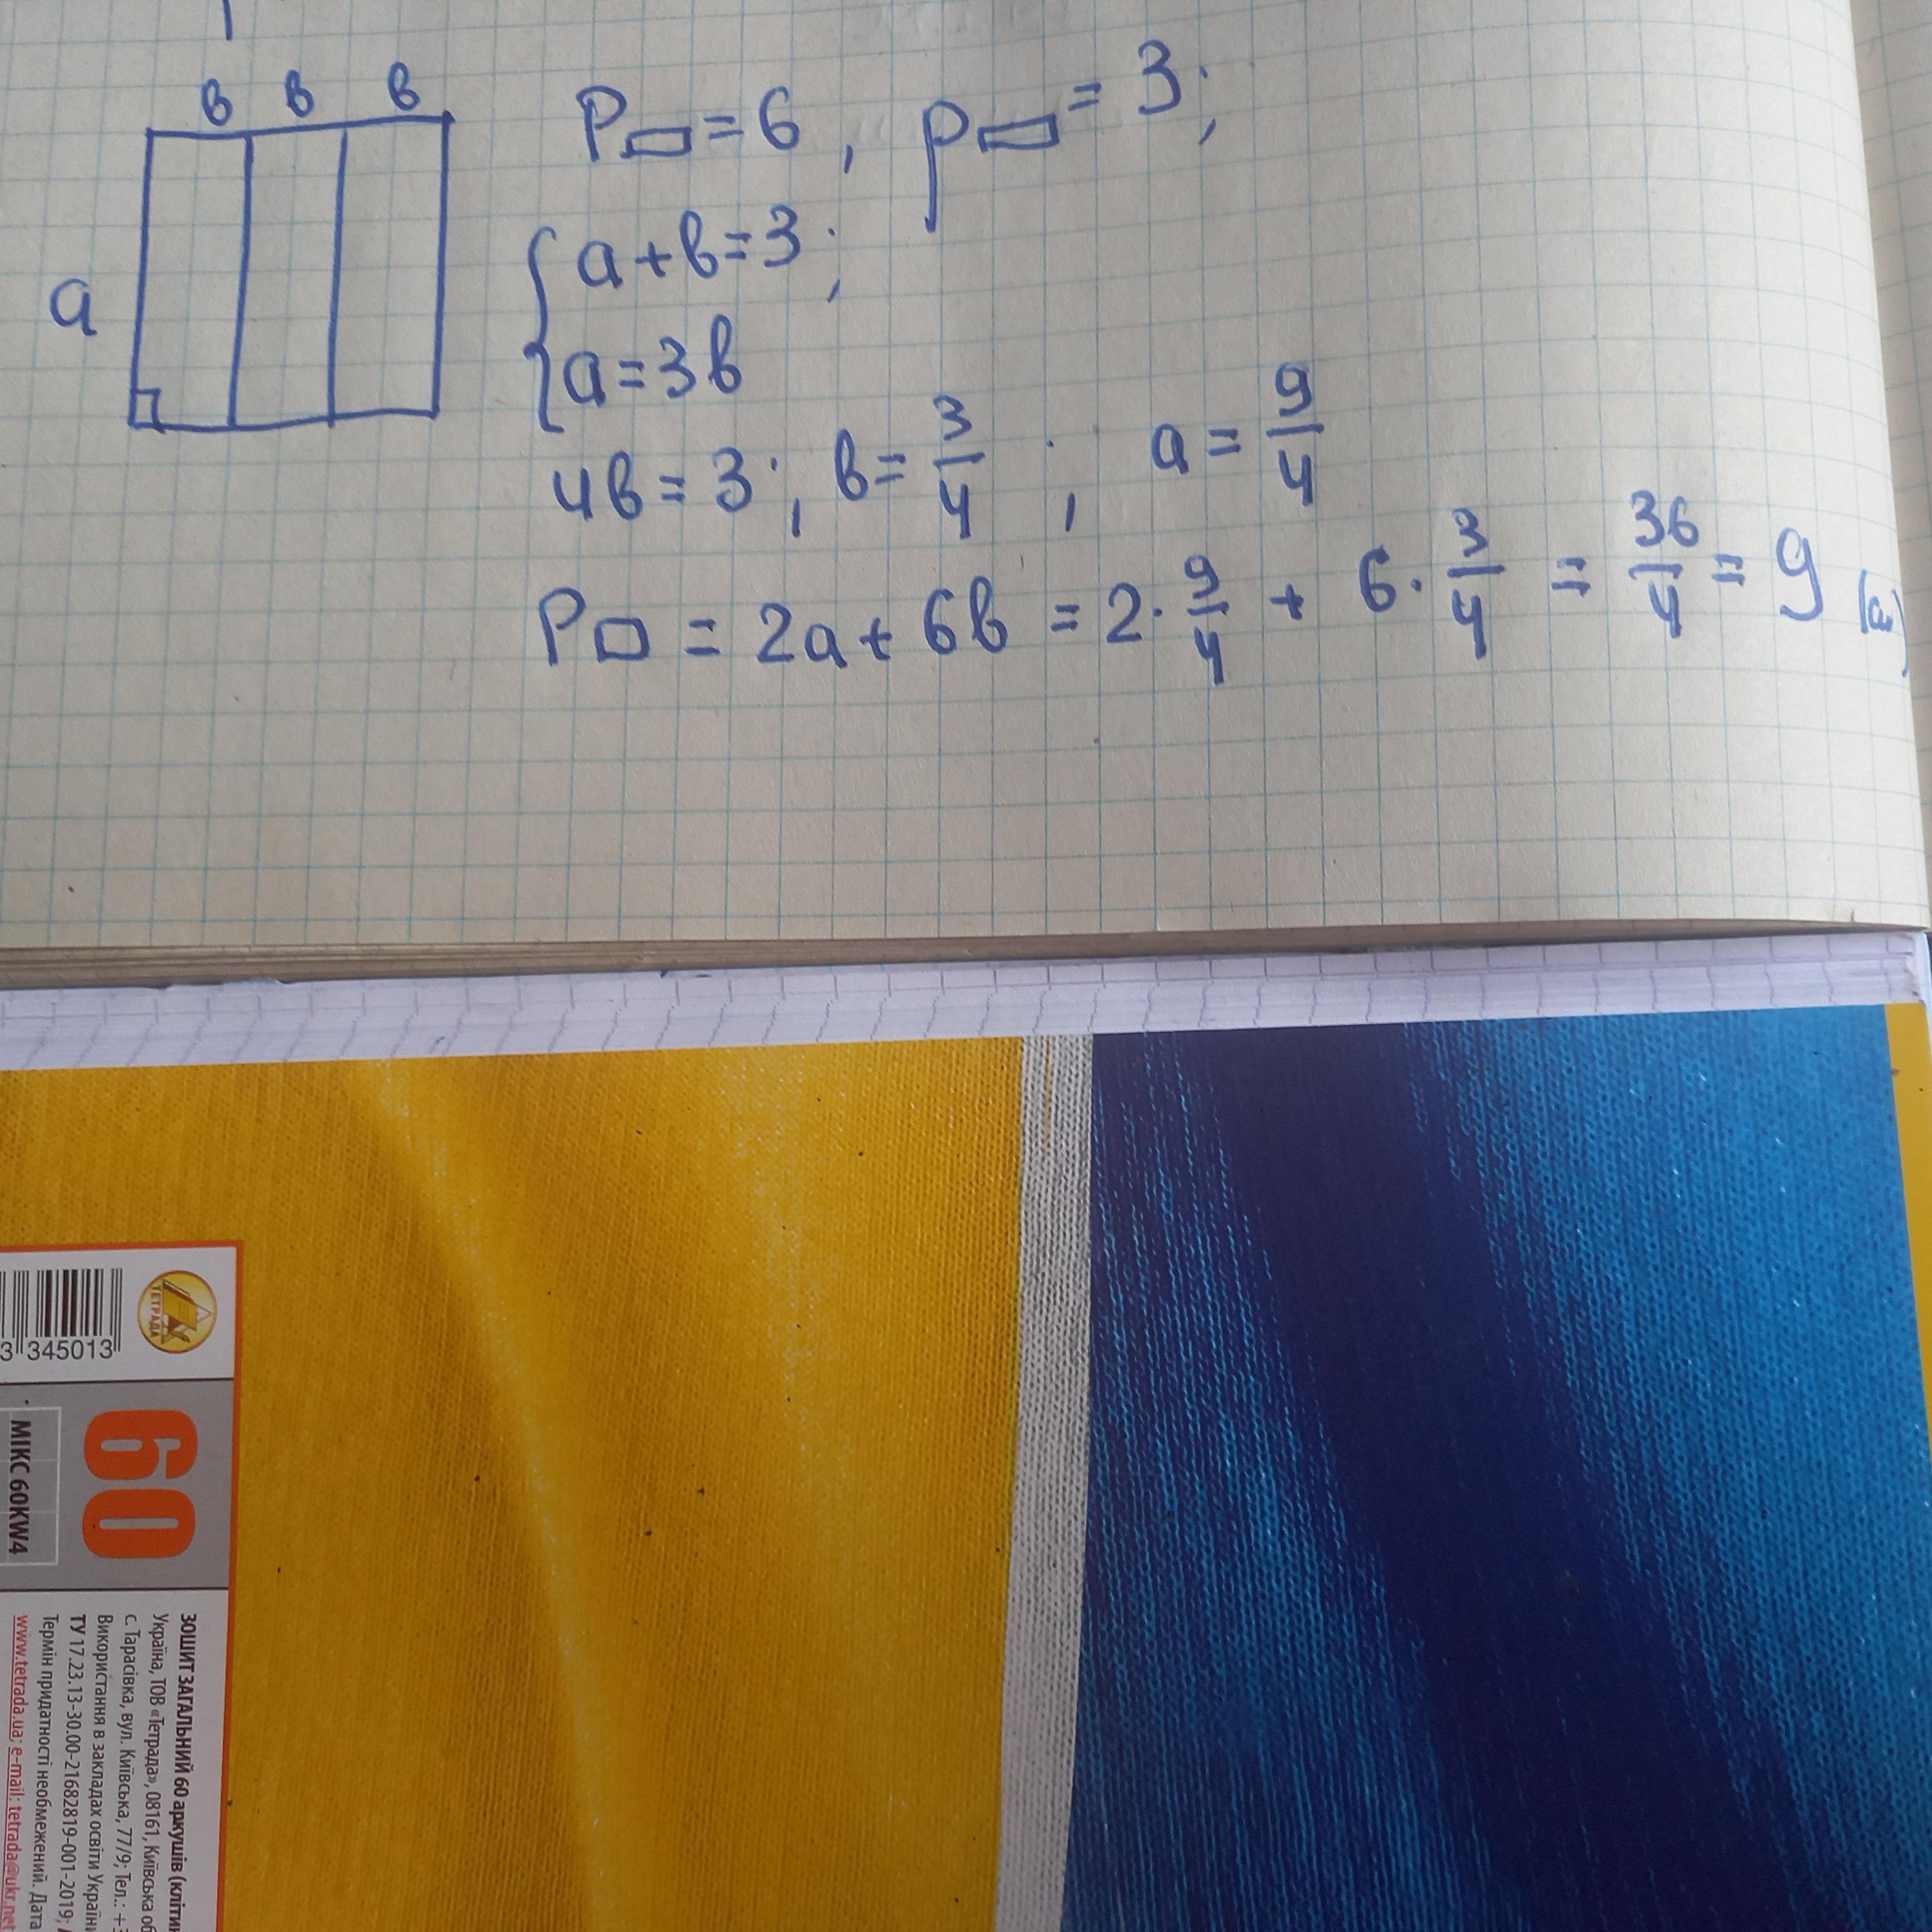 в в в
a
P▭ = 6, p▭ = 3;
{ a + b = 3;
{ a = 3b
4b = 3; b = 3/4; a = 9/4
P□ = 2a + 6b = 2·9/4 + 6·3/4 = 36/4 = 9
3 345013
ТЕТРАДА
60
МІКС 60KW4
ЗОШИТ ЗАГАЛЬНИЙ 60 аркушів
Україна, ТОВ «Тетрада», 08161, Київська
с. Тарасівка, вул. Київська, 77/9; Тел.: +3
Використання в закладах освіти України
ТУ 17.23.13-30.00-21682819-001-2019;
Термін придатності необмежений. Дата
www.tetrada.ua; e-mail: tetrada@ukr.net